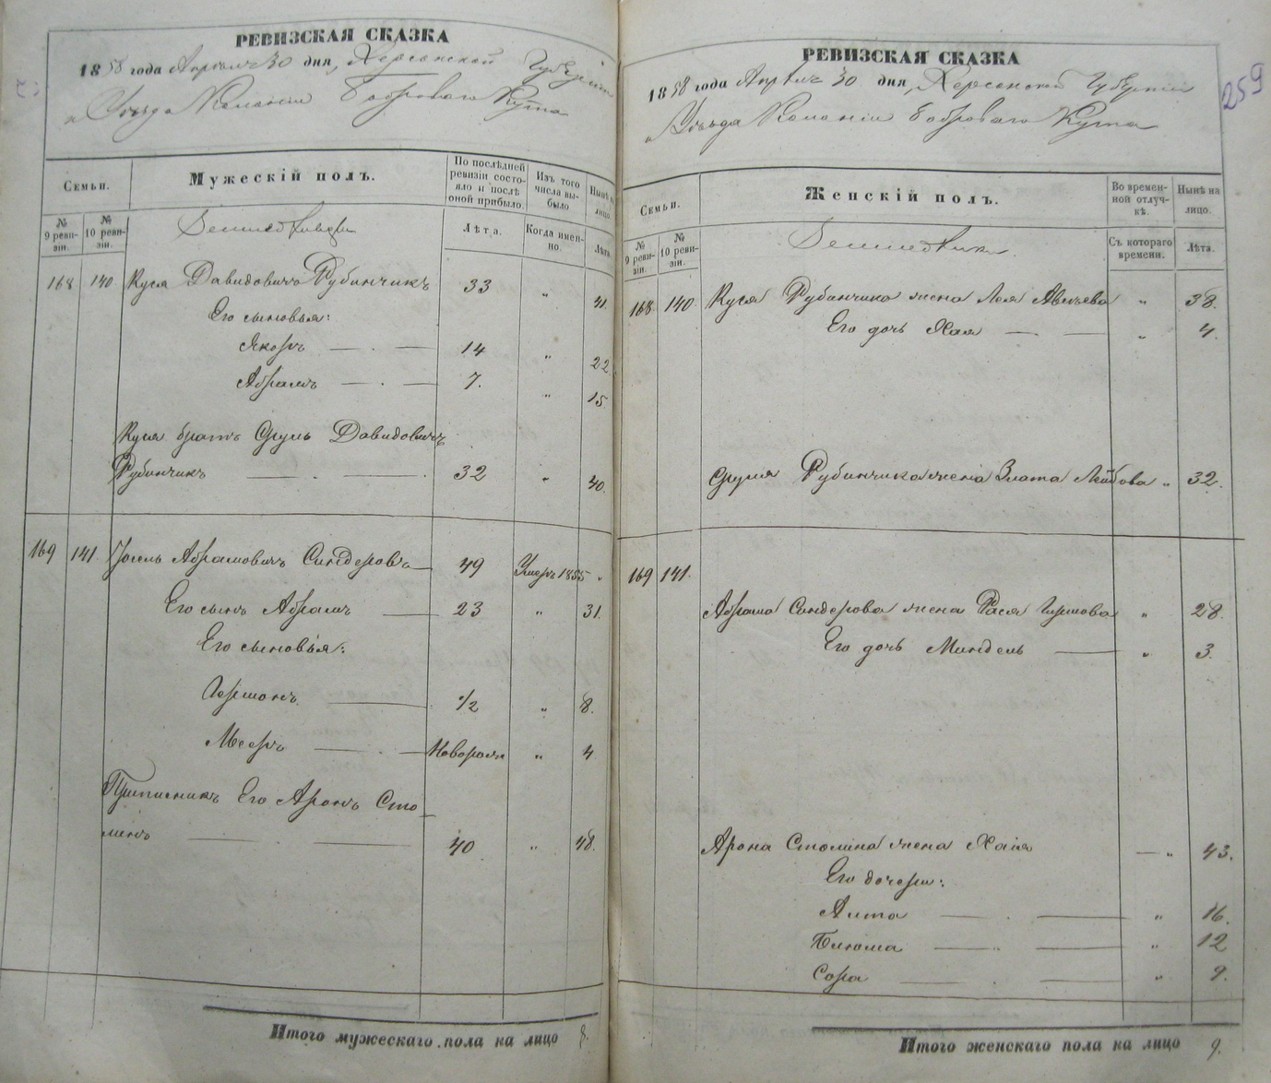 РЕВИЗСКАЯ СКАЗКА
1858 года Апрѣля 30 дня, Херсонской Губерніи
и Уѣзда Колоніи Боброваго Кута
Семьи.
Мужескій полъ.
По послѣдней ревизіи состояло и послѣ оной прибыло.
Изъ того числа выбыло.
Нынѣ на лицо.
№ 9 ревизіи.
№ 10 ревизіи.
Лѣта.
Когда именно.
Лѣта.
168 140 Куся Давидовичъ Рубинчикъ 33 „ 41.
Его сыновья:
Якорь 14 „ 22
Абрамъ 7. „ 15.
Куся братъ Сруль Давидовичъ
Рубинчикъ 32 „ 40.
169 141 Абрамовичъ Синдеровъ 49 Умеръ 1855 „
Его сынъ Абрамъ 23 „ 31.
Его сыновья:
Гершонъ 1/2 „ 8.
Мееръ Новорож „ 4
Приписникъ Его Аронъ Сто-
линъ 40 „ 48.
Итого мужескаго пола на лицо 8.
РЕВИЗСКАЯ СКАЗКА
259
1858 года Апрѣля 30 дня, Херсонской Губерніи
и Уѣзда Колоніи Боброваго Кута
Семьи.
Женскій полъ.
Во временной отлучкѣ.
Нынѣ на лицо.
№ 9 ревизіи.
№ 10 ревизіи.
Съ котораго времени.
Лѣта.
168 140 Куся Рубинчика жена Лея „ 38.
Его дочь Хая „ 4.
Сруля Рубинчика жена Злата Лейбова „ 32.
169 141.
Абрама Синдерова жена Рася Гиршова „ 28.
Его дочь Миндель „ 3.
Арона Столина жена Хая „ 43.
Его дочери:
„ 16.
„ 12
Сора „ 9.
Итого женскаго пола на лицо 9.